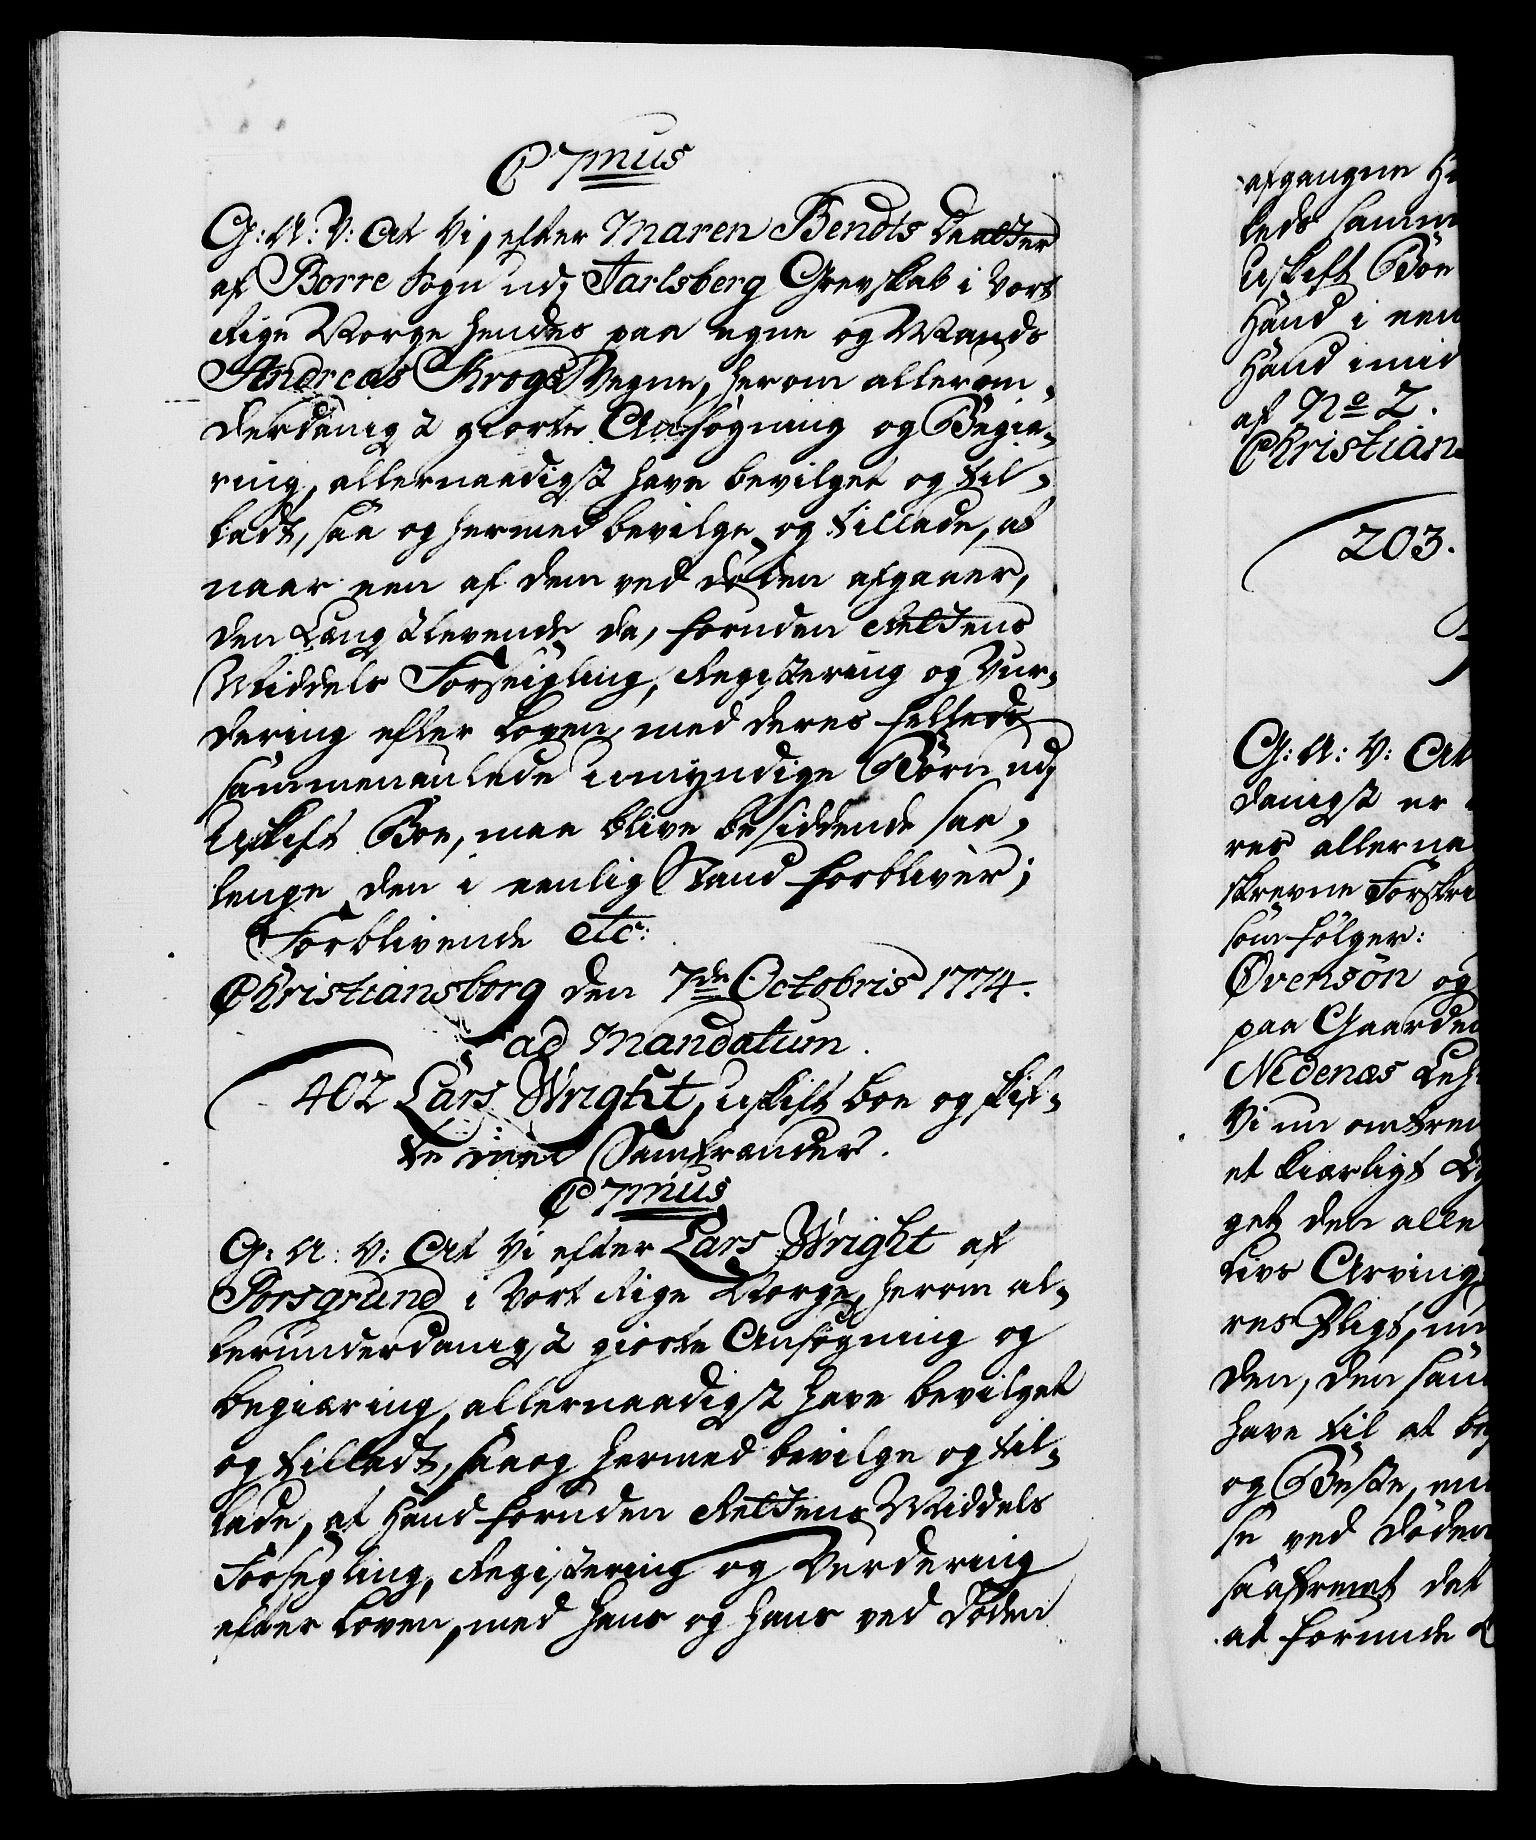 C 7mus
G: A: V: At Vi, efter Maren Bendts Daatter
af Borre Sogn udj Jarlsberg Grevskab i Vort
Rige Norge hendes paa egne og Mands
Andreas Krogs Vegne, herom allerun-
derdanigst giorte Ansøgning og Begiæ-
ring, allernaadigst have bevilget og til-
ladt, saa og hermed bevilge og tillade, at
naar een af dem ved døden afgaaer,
den Længstlevende da, foruden Rettens
Middels Forseigling, Registering og Vur-
dering efter Loven, med deres felleds
sammenavlede umyndige Børn udj
Uskift Boe, maa blive besiddende saa-
lenge den i eenlig Stand forbliver;
Forblivende etc:
Christiansborg den 7de Octobris 1774.
ad Mandatum.
402 Lars Wright, uskift boe og skif-
te med Samfrænder.
C 7mus
G: A: V: At Vi efter Lars Wright af
Porsgrund i Vort Rige Norge, herom al-
lerunderdanigst giorte Ansøgning og
begiæring, allernaadigst have bevilget
og tilladt, saa og hermed bevilge og til-
lade, at Hand foruden Rettens Middels
Forsegling, Registering og Vurdering
efter Loven, med hans og hans ved Døden
afgangne
leds samm
Uskift Boe
Hand i een
Hand imid
af No 2.
Christian
203.
G: A: V: At
danigst er
res allerna
skrevne Forskri
som følger:
Øvensøn og
paa Gaarden
Nedenæs Leh
Vi nu omtren
et kiærligt
get den alle
Livs Arving
res Pligt, nu
den, den sam
have til at
og Beste, en
se ved Døden
saafremt det
at formode